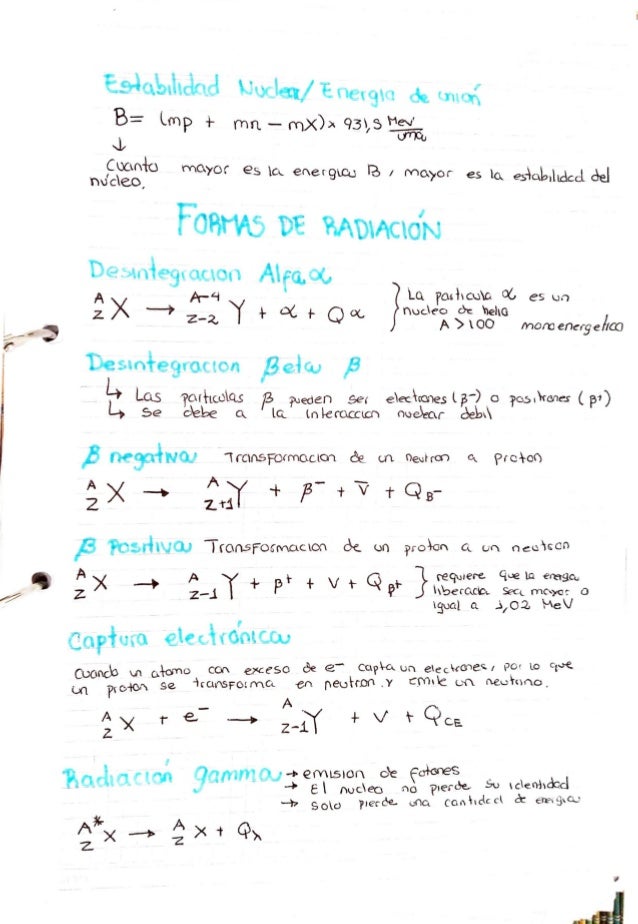 Estabilidad Nuclear / Energia de unión
B = (mp + mn − mX) x 931,5 MeV/uma
↓
Cuanto mayor es la energia B, mayor es la estabilidad del
núcleo.
FORMAS DE RADIACIÓN
Desintegracion Alfa α
A Z X → A-4 Z-2 Y + α + Qα } La particula α es un
nucleo de helio
A > 100 monoenergetico
Desintegracion Beta β
↳ Las particulas β pueden ser electrones (β-) o positrones (β+)
↳ Se debe a la interaccion nuclear debil
β negativa Transformacion de un neutron a proton
A Z X → A Z+1 Y + β- + v̄ + Qβ-
β Positiva Transformacion de un proton a un neutron
A Z X → A Z-1 Y + β+ + v + Qβ+ } requiere que la energia
liberada sea mayor o
igual a 1,02 MeV
Captura electrónica
Cuando un atomo con exceso de e- capta un electrones, por lo que
un proton se transforma en neutron y emite un neutrino.
A Z X + e- → A Z-1 Y + v + QCE
Radiación gamma → emision de fotones
→ El nucleo no pierde su identidad
→ Solo pierde una cantidad de energia
A* Z X → A Z X + Qγ